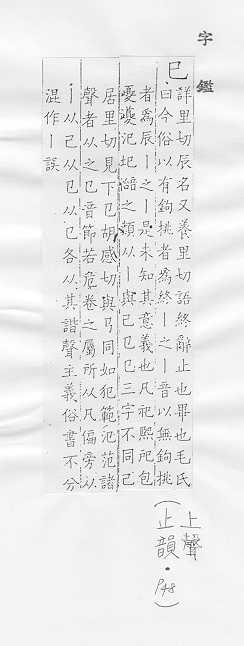 字鑑
巳
詳里切辰名又養里切語終辭止也畢也毛氏
曰今俗以有鉤挑者爲終丨之丨音以無鉤挑
者爲辰丨之丨是未知其意義也凡祀熙祀包
夔 汜圯 之類从丨與己㔾巳三字不同己
居里切見下㔾胡感切與丂同如犯範氾范諸
聲者从之㔾音節若危卷之屬所从凡偏旁从
丨从己从㔾从㔾各从其諧聲主義俗書不分
混作丨誤
(上聲
止韻・P48)